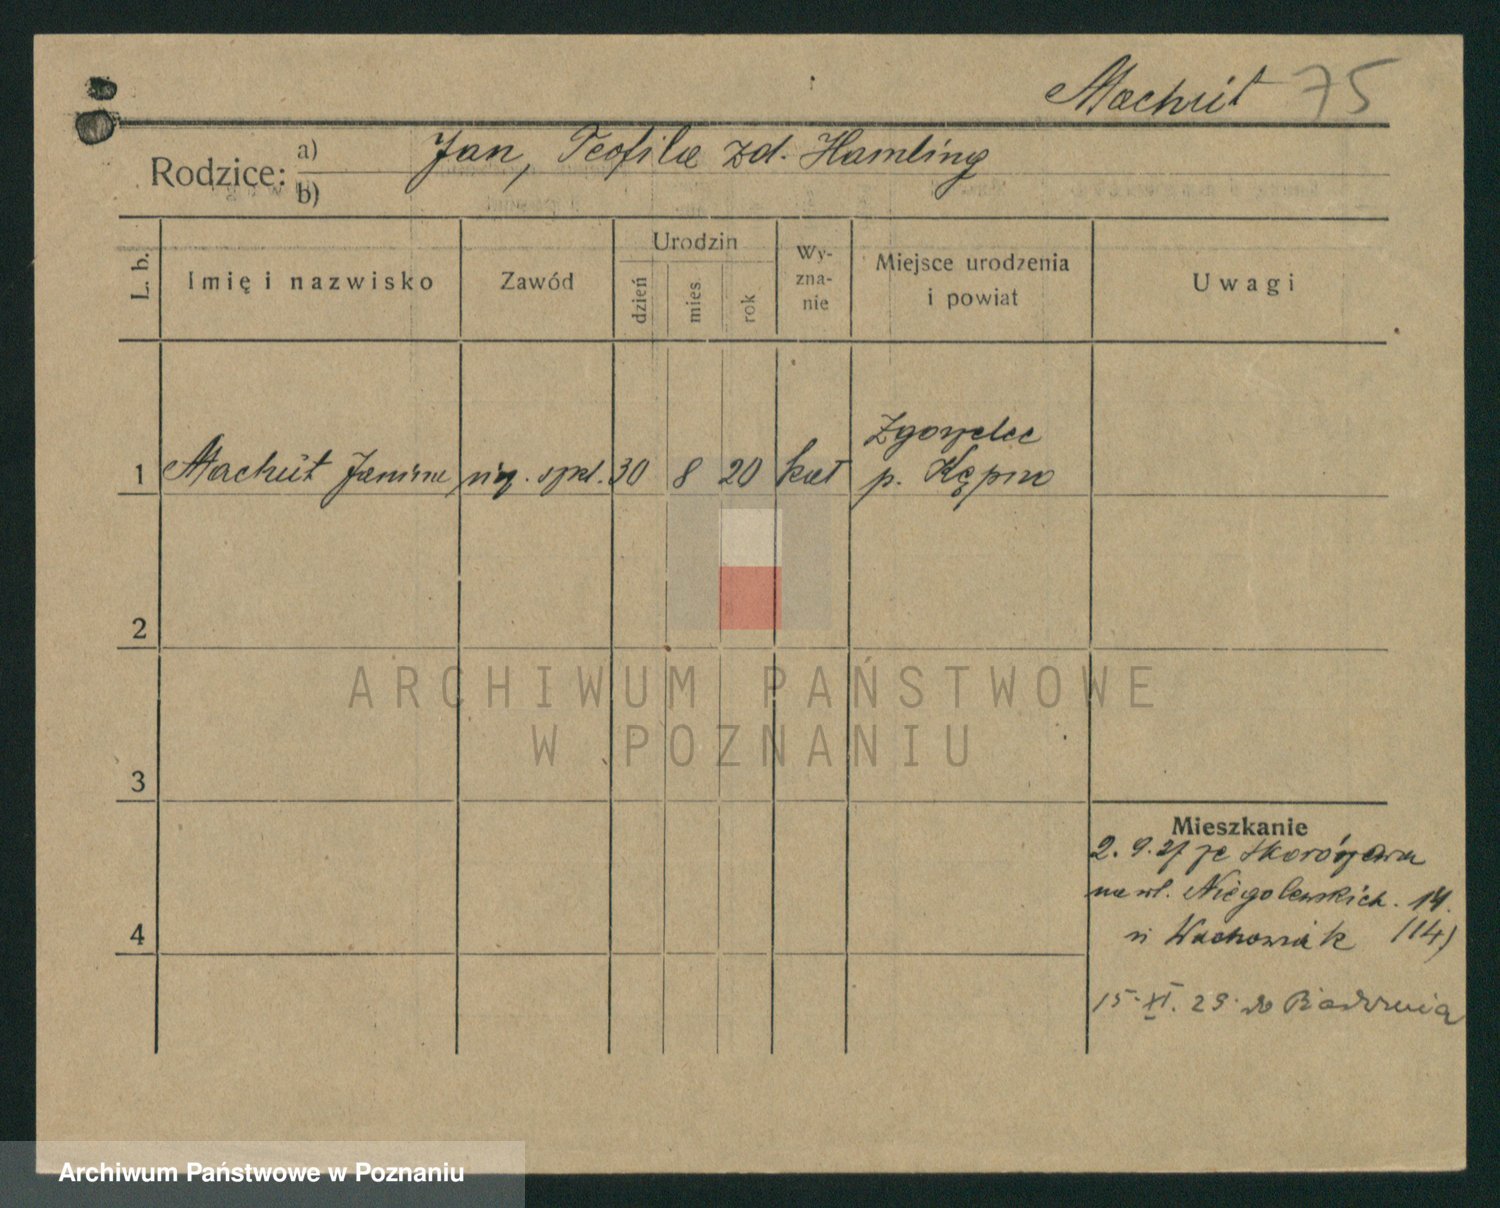 Machut 75
Rodzice: a) Jan, Teofila zd. Hamling
b)
L. b.
Imię i nazwisko
Zawód
Urodzin
dzień
mies.
rok
Wy-
zna-
nie
Miejsce urodzenia
i powiat
Uwagi
Zgorzelec
1 Machut Janina 30 8 20 kat p. Kępno
2
ARCHIWUM PAŃSTWOWE
W POZNANIU
3
Mieszkanie
2. 9. 27 ze Skorózewa
na wł. Niegolewskich. 14.
4
Wachowiak (14)
15. XI. 29. do
Archiwum Państwowe w Poznaniu